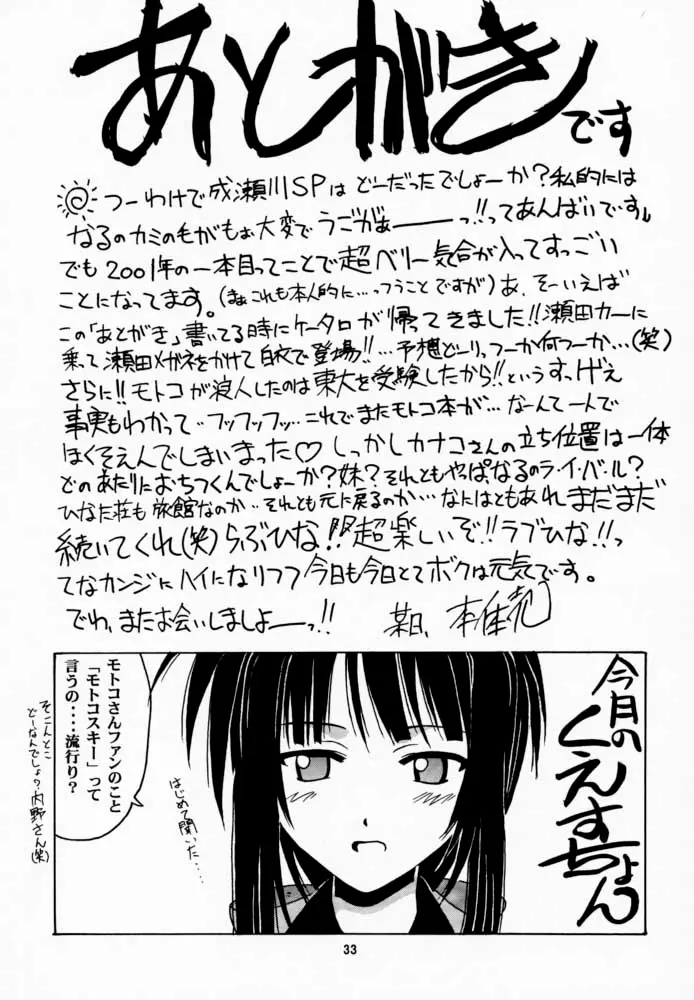 あとがきです
つーわけで成瀬川SPはどーだったでしょーか?私的には
なるのカミの毛がもぉ大変でうごがぁーーっ!!ってあんばいです。
でも2001年の一本目ってことで超ベリー気合が入ってすっごい
ことになってます。(まぁこれも本人的に…っつうことですが)あ、そーいえば
この「あとがき」書いてる時にケータロが帰ってきました!!瀬田カーに
乗って瀬田メガネをかけて白衣で登場!!…予想どーりっつーか何つーか…(笑)
さらに!!モトコが浪人したのは東大を受験したから!!というすっげえ
事実もわかって‥フッフッフッ…これでまたモトコ本が…なーんて一人で
ほくそえんでしまいまった♡しっかしカナコさんの立ち位置は一体
どのあたりにおちつくんでしょーか?妹?それともやぱなるのラ・イ・バ・ル?
ひなた荘も旅館なのか‥それとも元に戻るのか…なにはともあれまだまだ
続いてくれ(笑)らぶひな!!超楽しいぞ!!ラブひな!!っ
てなカンジにハイになりつつ今日も今日とてボクは元気です。
でわ、またお会いしましょーーっ!!
某日、
今月のくえすちょん
モトコさんファンのこと
「モトコスキー」って
言うの‥‥流行り?
はじめて聞いた…
そこんとこ
どーなんでしょ?内野さん(笑)
33